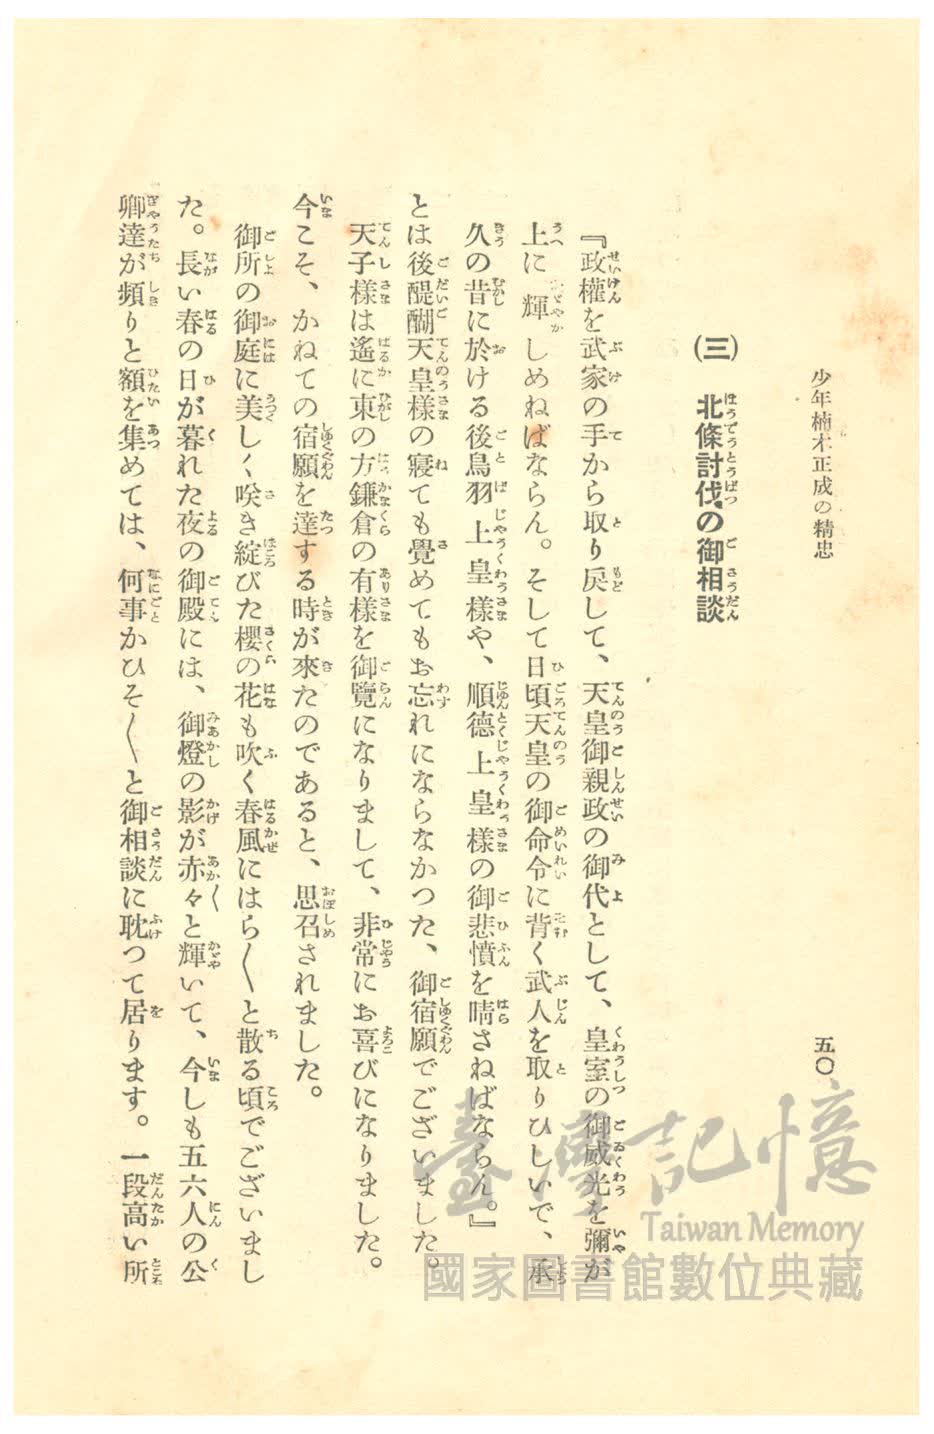 少年楠木正成の精忠
五〇
(三) 北條討伐の御相談
『政權を武家の手から取り戻して、天皇御親政の御代として、皇室の御威光を彌が
上に輝しめねばならん。そして日頃天皇の御命令に背く武人を取りひしいで、承
久の昔に於ける後鳥羽上皇樣や、順德上皇樣の御悲憤を晴さねばならん。』
とは後醍醐天皇樣の寢ても覺めてもお忘れにならなかつた、御宿願でございました。
天子樣は遙に東の方鎌倉の有樣を御覽になりまして、非常にお喜びになりました。
今こそ、かねての宿願を達する時が來たのであると、思召されました。
御所の御庭に美しく咲き綻びた櫻の花も吹く春風にはら〱と散る頃でございまし
た。長い春の日が暮れた夜の御殿には、御燈の影が赤々と輝いて、今しも五六人の公
卿達が頻りと額を集めては、何事かひそ〱と御相談に耽つて居ります。一段高い所
臺灣記憶
Taiwan Memory
國家圖書館數位典藏